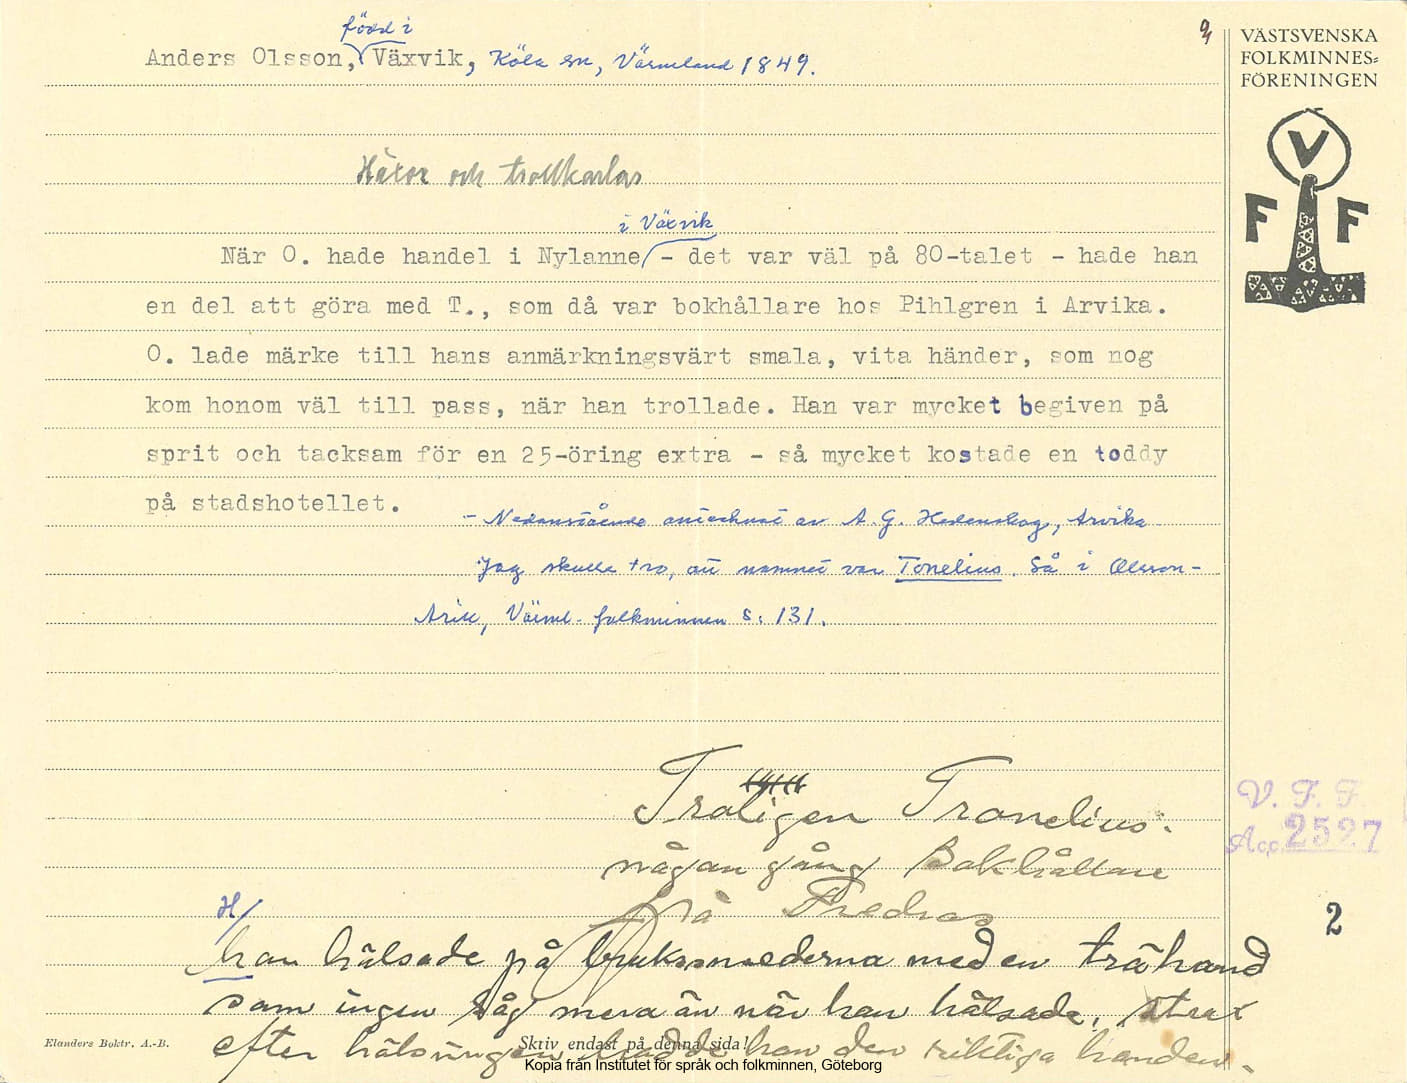 född i
Anders Olsson, Växvik, Köla sn, Värmland 1849.
VÄSTSVENSKA
FOLKMINNES=
FÖRENINGEN
V
F F
Häxor och trollkarlar
i Växvik
När O. hade handel i Nylanne - det var väl på 80-talet - hade han
en del att göra med T., som då var bokhållare hos Pihlgren i Arvika.
O. lade märke till hans anmärkningsvärt smala, vita händer, som nog
kom honom väl till pass, när han trollade. Han var mycket begiven på
sprit och tacksam för en 25-öring extra - så mycket kostade en toddy
på stadshotellet.
- Nedanstående antecknat av A. G. Hedenskog, Arvika
Jag skulle tro, att namnet var Tonelius. Så i Olsson-
Arill, Värml. folkminnen s: 131.
Troligen Tranelius.
någan gång Bokhållare
på Fredros
V. F. F.
Acc. 2527
2
H/
han hälsade på bruksmederna med en trähand
som ingen såg mera än när han hälsade, strax
efter hälsningen hadde han den riktiga handen.
Elanders Boktr. A.-B.
Skriv endast på denna sida!
Kopia från Institutet för språk och folkminnen, Göteborg